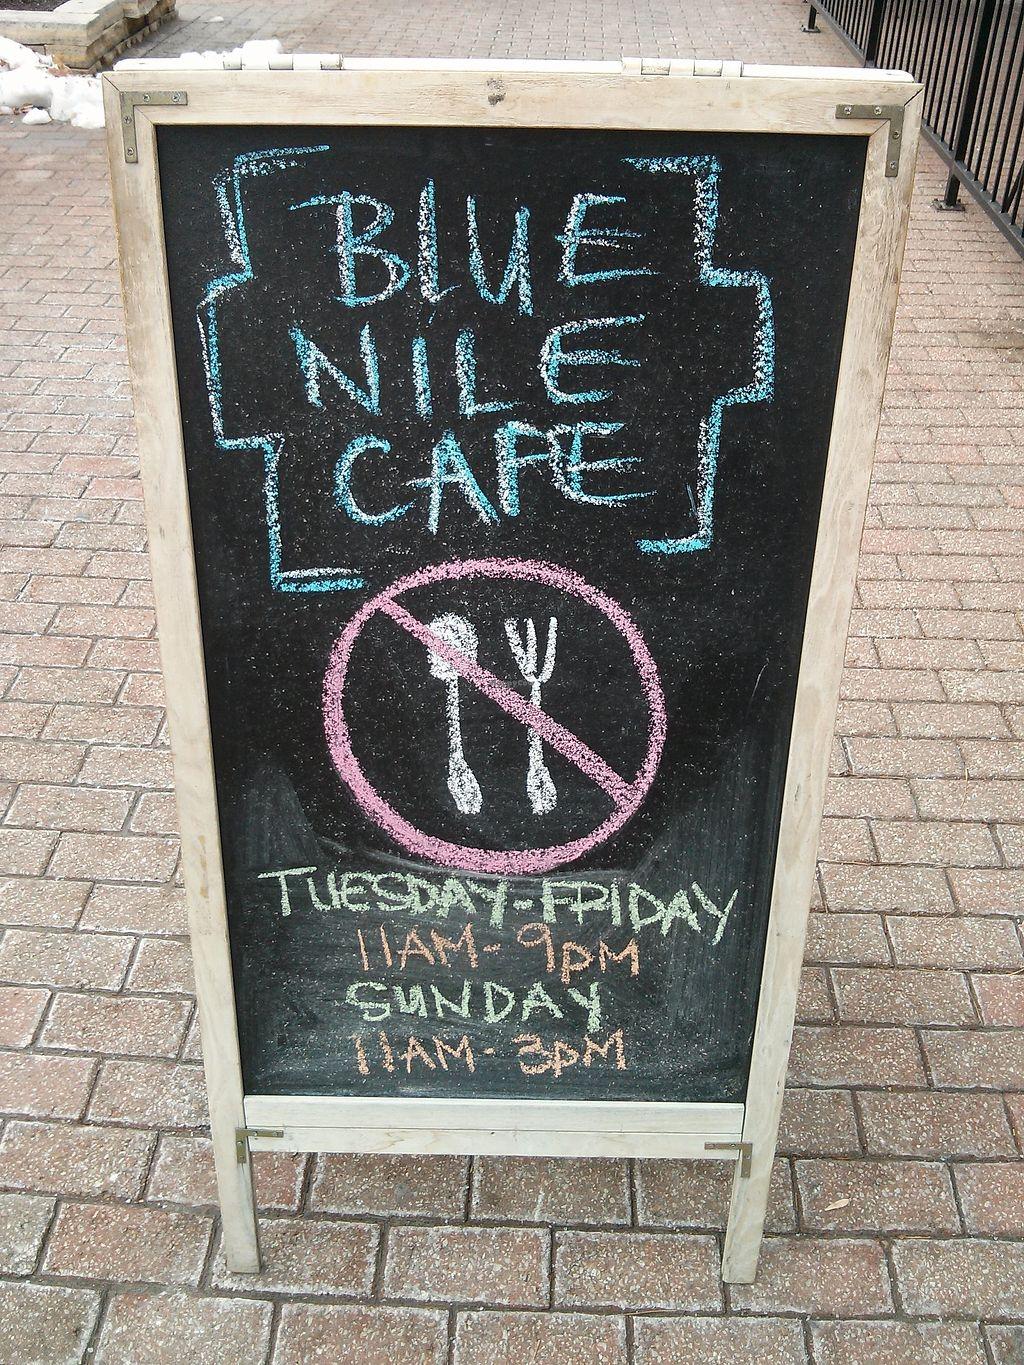 BLUE
NILE
CAFE
TUESDAY-FRIDAY
11AM-9pM
SUNDAY
11AM-3pM